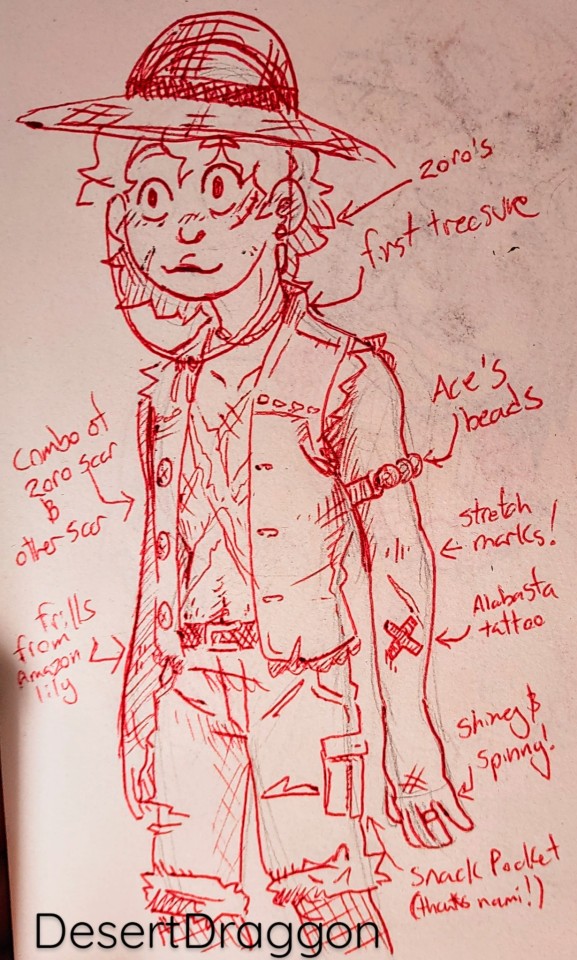 Zoro's
first treasure
Ace's
beads
Combo of
zoro scar
&
other scar
stretch
marks!
Alabasta
tattoo
frills
from
Amazon
lily
Shiney &
Spinny!
Snack Pocket
(thanks nami!)
DesertDraggon